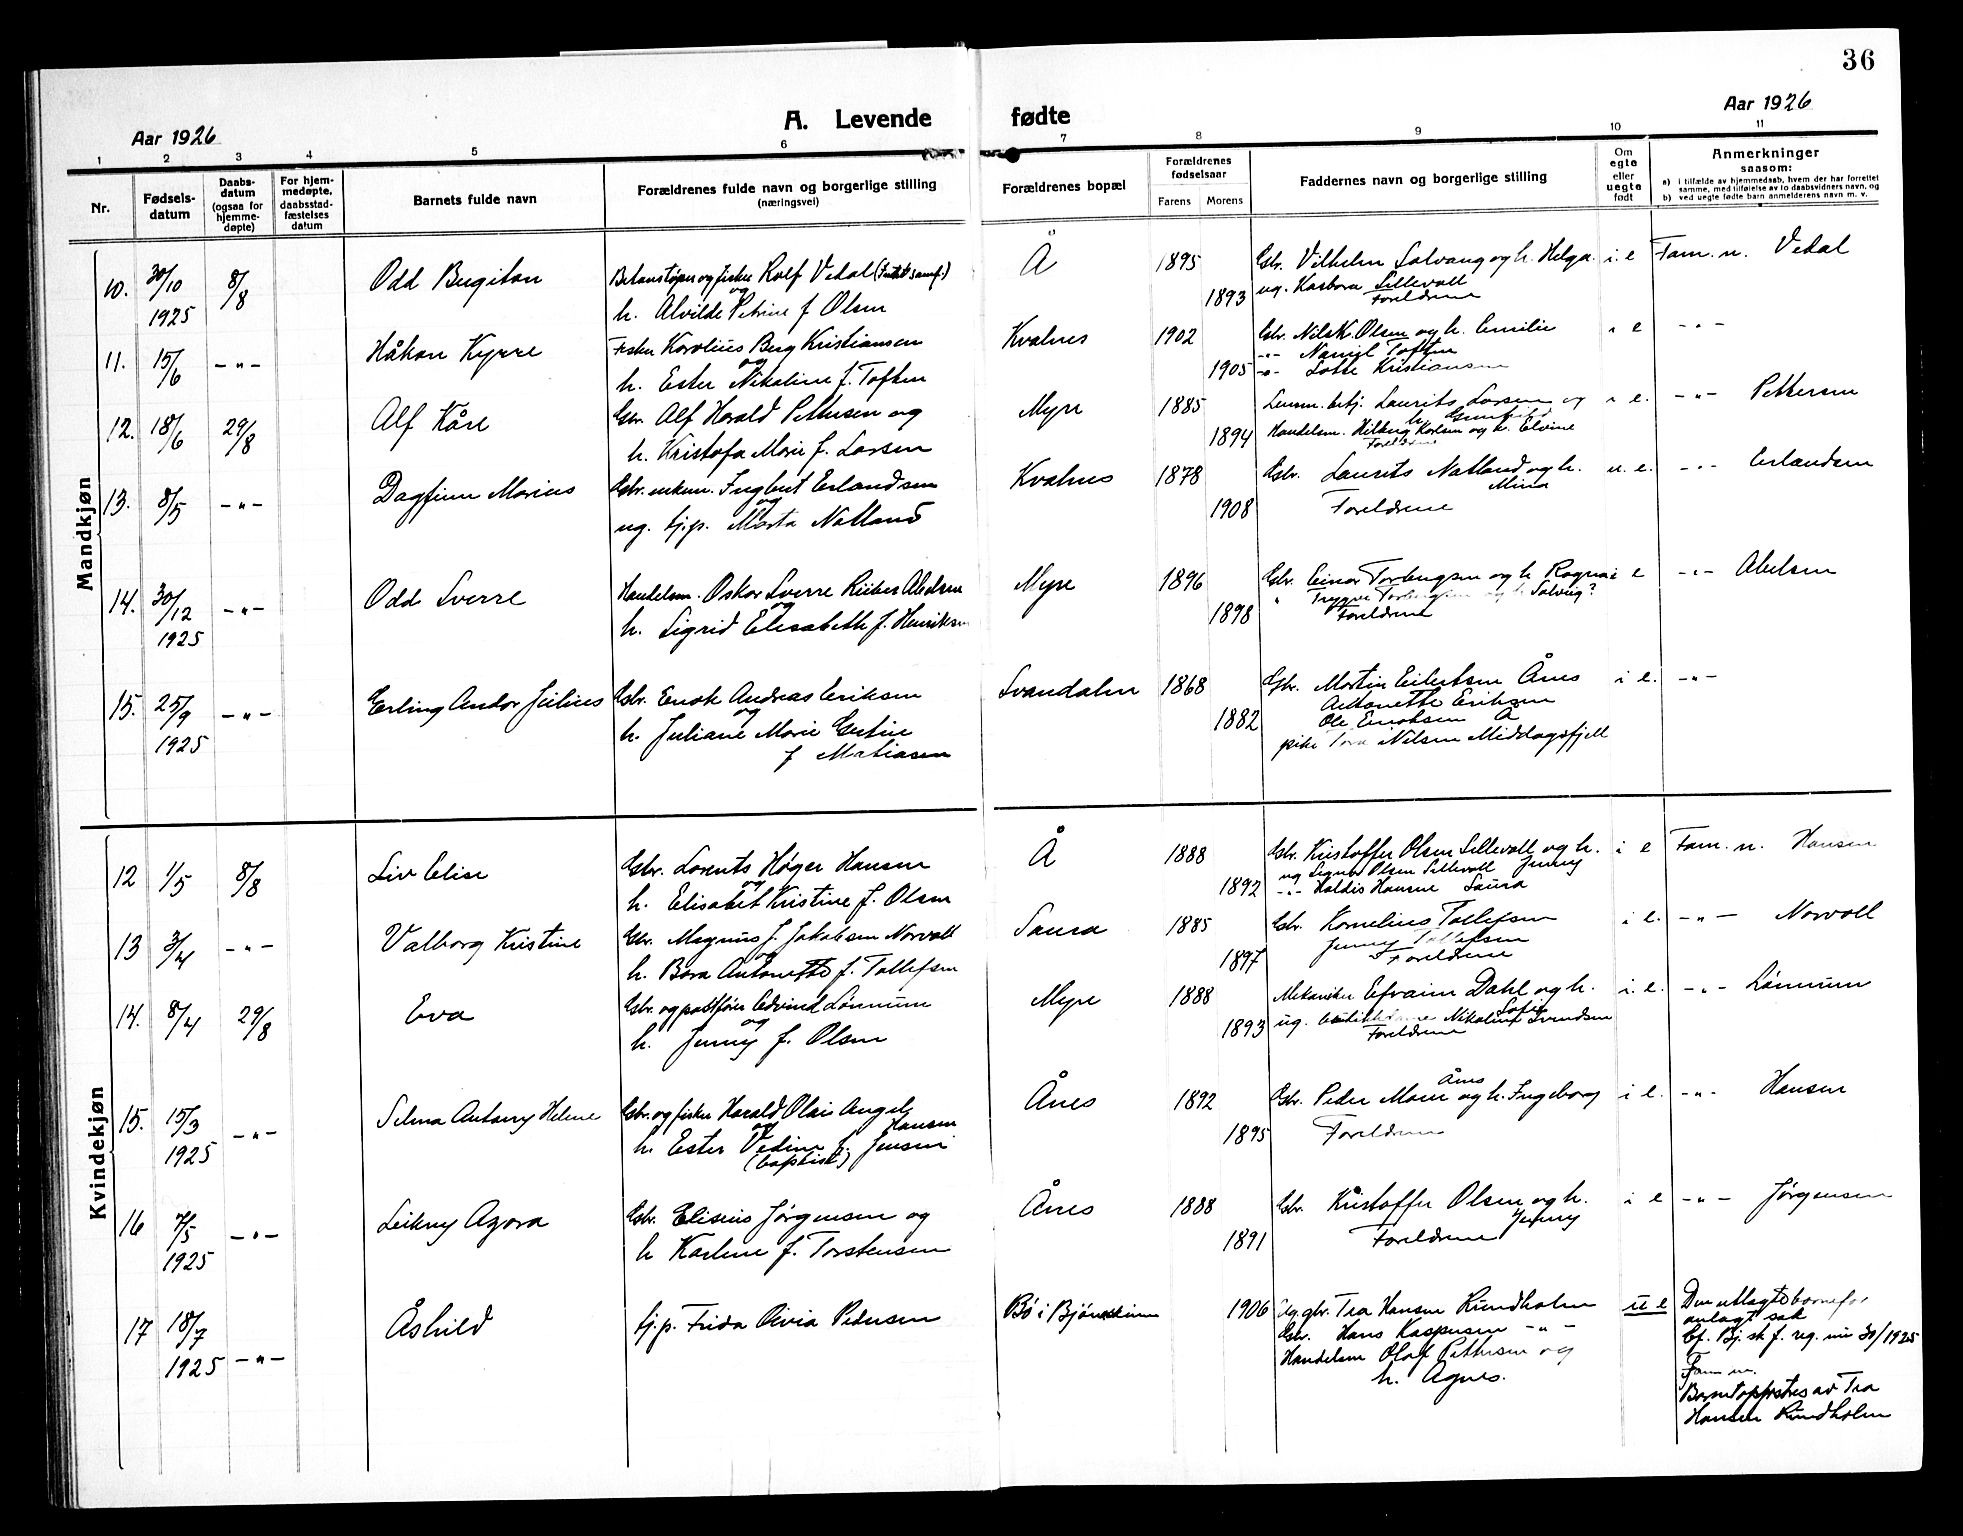 36
Aar 1926
A. Levende fødte
Aar 1926
1 2 3 4 5 6 7 8 9 10 11
Nr.
Fødsels-
datum
Daabs-
datum
(ogsaa for
hjemme-
døpte)
For hjem-
medøpte,
daabsstad-
fæstelses
datum
Barnets fulde navn
Forældrenes fulde navn og borgerlige stilling
(næringsvei)
Forældrenes bopæl
Forældrenes
fødselsaar
Farens Morens
Faddernes navn og borgerlige stilling
Om
egte
eller
uegte
født
Anmerkninger
saasom:
a) i tilfælde av hjemmedaab, hvem der har forrettet
samme, med tilføielse av to daabsvidners navn, og
b) ved uegte fødte barn anmelderens navn m. v.
Mandkjøn
10. 30/10 8/8 Odd Bugiton Rolf Vedal Å 1895 Gbr. Vilhelm Solvang og h. Helga i. e Fam. n. Vedal
1925 h. Alvilde Petrine f Olsen 1893 ug. Kasbora Sillevoll
Foreldrene
11. 15/6 -"- Håkon Kyrre Fisker Karolius Berg Kristiansen Kvalnes 1902 Gbr. Nils K. Olsen og h. Emilie i e -"-
og
h. Ester Nikoline f. Toften 1905 -"- Lotte Kristiansen
12. 18/6 29/8 Alf Kåre Gbr. Alf Harald Pettersen og Myre 1885 Lensm. betj. Laurits Larsen og i e. -"- Pettersen
h. Kristofa Marie f. Larsen 1894 Handelsm. Hilberg Karlsen og h. Elvine
Foreldrene
13. 8/5 -"- Dagfinn Marius Gbr. enkem. Ingbert Erlandsen Kvalnes 1878 Gbr. Laurits Natland og h. u. e. -"- Erlandsen
og Mina
ug. tj.p. Marta Natland 1908 Foreldrene
14. 30/12 -"- Odd Sverre Handelsm. Oskar Sverre Riiber Abelsen Myre 1896 Gbr. Einar Torbergsen og h Ragna i e -"- Abelsen
og " Trygve Torbergsen og h Solveig?
1925 h. Sigrid Elisabeth f. Henriksen 1898 Foreldrene
15. 25/9 -"- Erling Andor Julius Gbr. Enok Andreas Eriksen Svandalen 1868 Gbr. Martin Eilertsen Ånes i e. -"-
og Antonette Eriksen
1925 h. Juliane Marie Gertine 1882 Ole Enoksen Å
f Matiasen pike Tora Nilsen Middagsfjell
Kvindekjøn
12 1/5 8/8 Liv Elise Gbr. Lorents Høger Hansen Å 1888 Gbr. Kristoffer Olsen Sillevoll og h. i e Fam. n. Hansen
og Jenny
h. Elisabet Kristine f. Olsen 1892 ug Signe Olsen Sillevoll
-"- Haldis Hansen Saura
13 3/4 -"- Valborg Kristine Gbr. Magnus J. Jakobsen Norvoll Saura 1885 Gbr. Kornelius Tollefsen i e. -"- Norvoll
og Jenny Tollefsen
h. Bora Antonette f. Tollefsen 1897 Foreldrene
14. 8/4 29/8 Eva Gbr. og postfører Edvind Lønnum Myre 1888 Mekaniker Efraim Dahl og h. i. e. -"- Lønnum
og Sofie
h. Jenny f. Olsen 1893 ug. Nikoline Svendsen
Foreldrene
15. 15/3 -"- Selma Antony Helene Gbr. og fisker Harald Olai Angel Hansen Ånes 1892 Gbr. Peder Moen Ånes og h. Ingeborg i e. -"- Hansen
og
1925 h. Ester Vedine f. Jensen 1895 Foreldrene
(baptist)
16 7/5 -"- Leikny Agora Gbr. Eliseus Jørgensen og Ånes 1888 Gbr. Kristoffer Olsen og h. i e -"- Jørgensen
Jenny
1925 h Karlene f. Torstensen 1891 Foreldrene
17 18/7 Åshild tj.p. Frida Olivia Pedersen Bø i Bjørnskinn 1906 Ug. gbr. Tra Hansen Rundholm u e Den utlagte barnefar
1925 -"- Gbr. Hans Kaspersen -"- anlagt sak
Handelsm Olaf Pettersen og Cf. Bj. sk. f. reg. nr 30/1925
h. Agnes. Fam n.
Barnet oppfostres av Tra
Hansen Rundholm